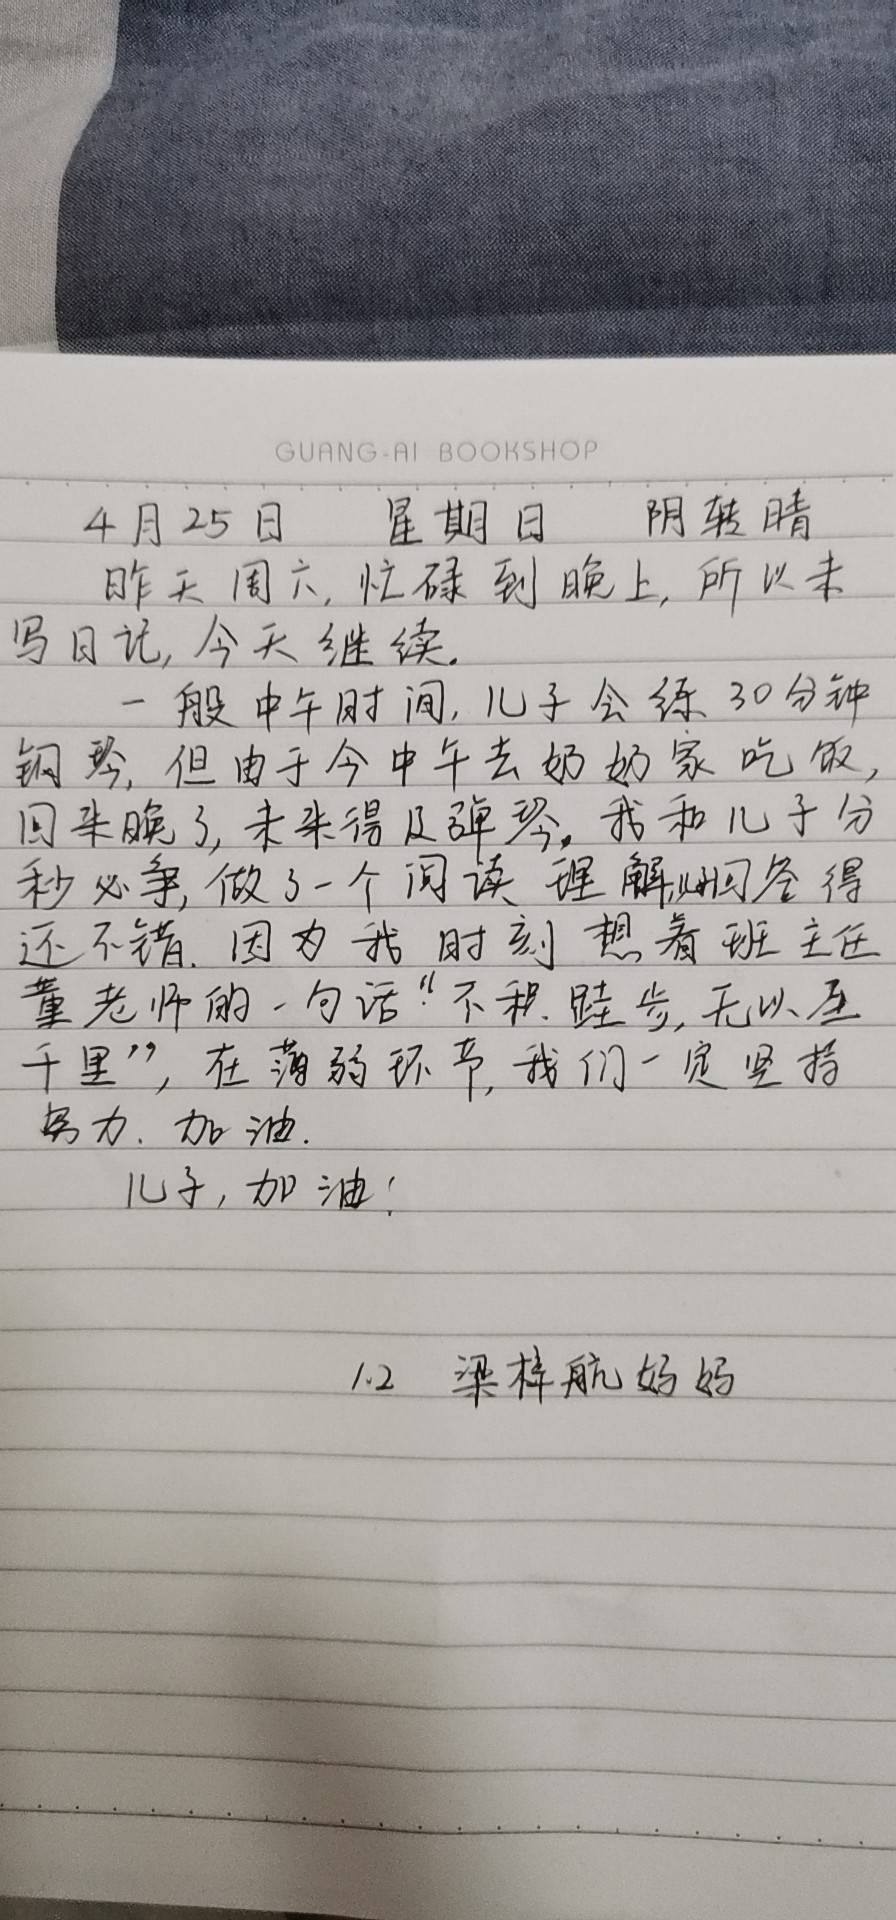 GUANG-AI BOOKSHOP
4月25日 星期日 阴转晴
昨天周六,忙碌到晚上,所以未
写日记,今天继续.
一般中午时间,儿子会练30分钟
钢琴,但由于今中午去奶奶家吃饭,
回来晚了,未来得及弹琴。我和儿子分
秒必争,做了一个阅读理解,回答得
还不错.因为我时刻想着班主任
董老师的一句话“不积跬步,无以至
千里”,在薄弱环节,我们一定坚持
努力.加油.
儿子,加油!
1.2 梁梓航妈妈